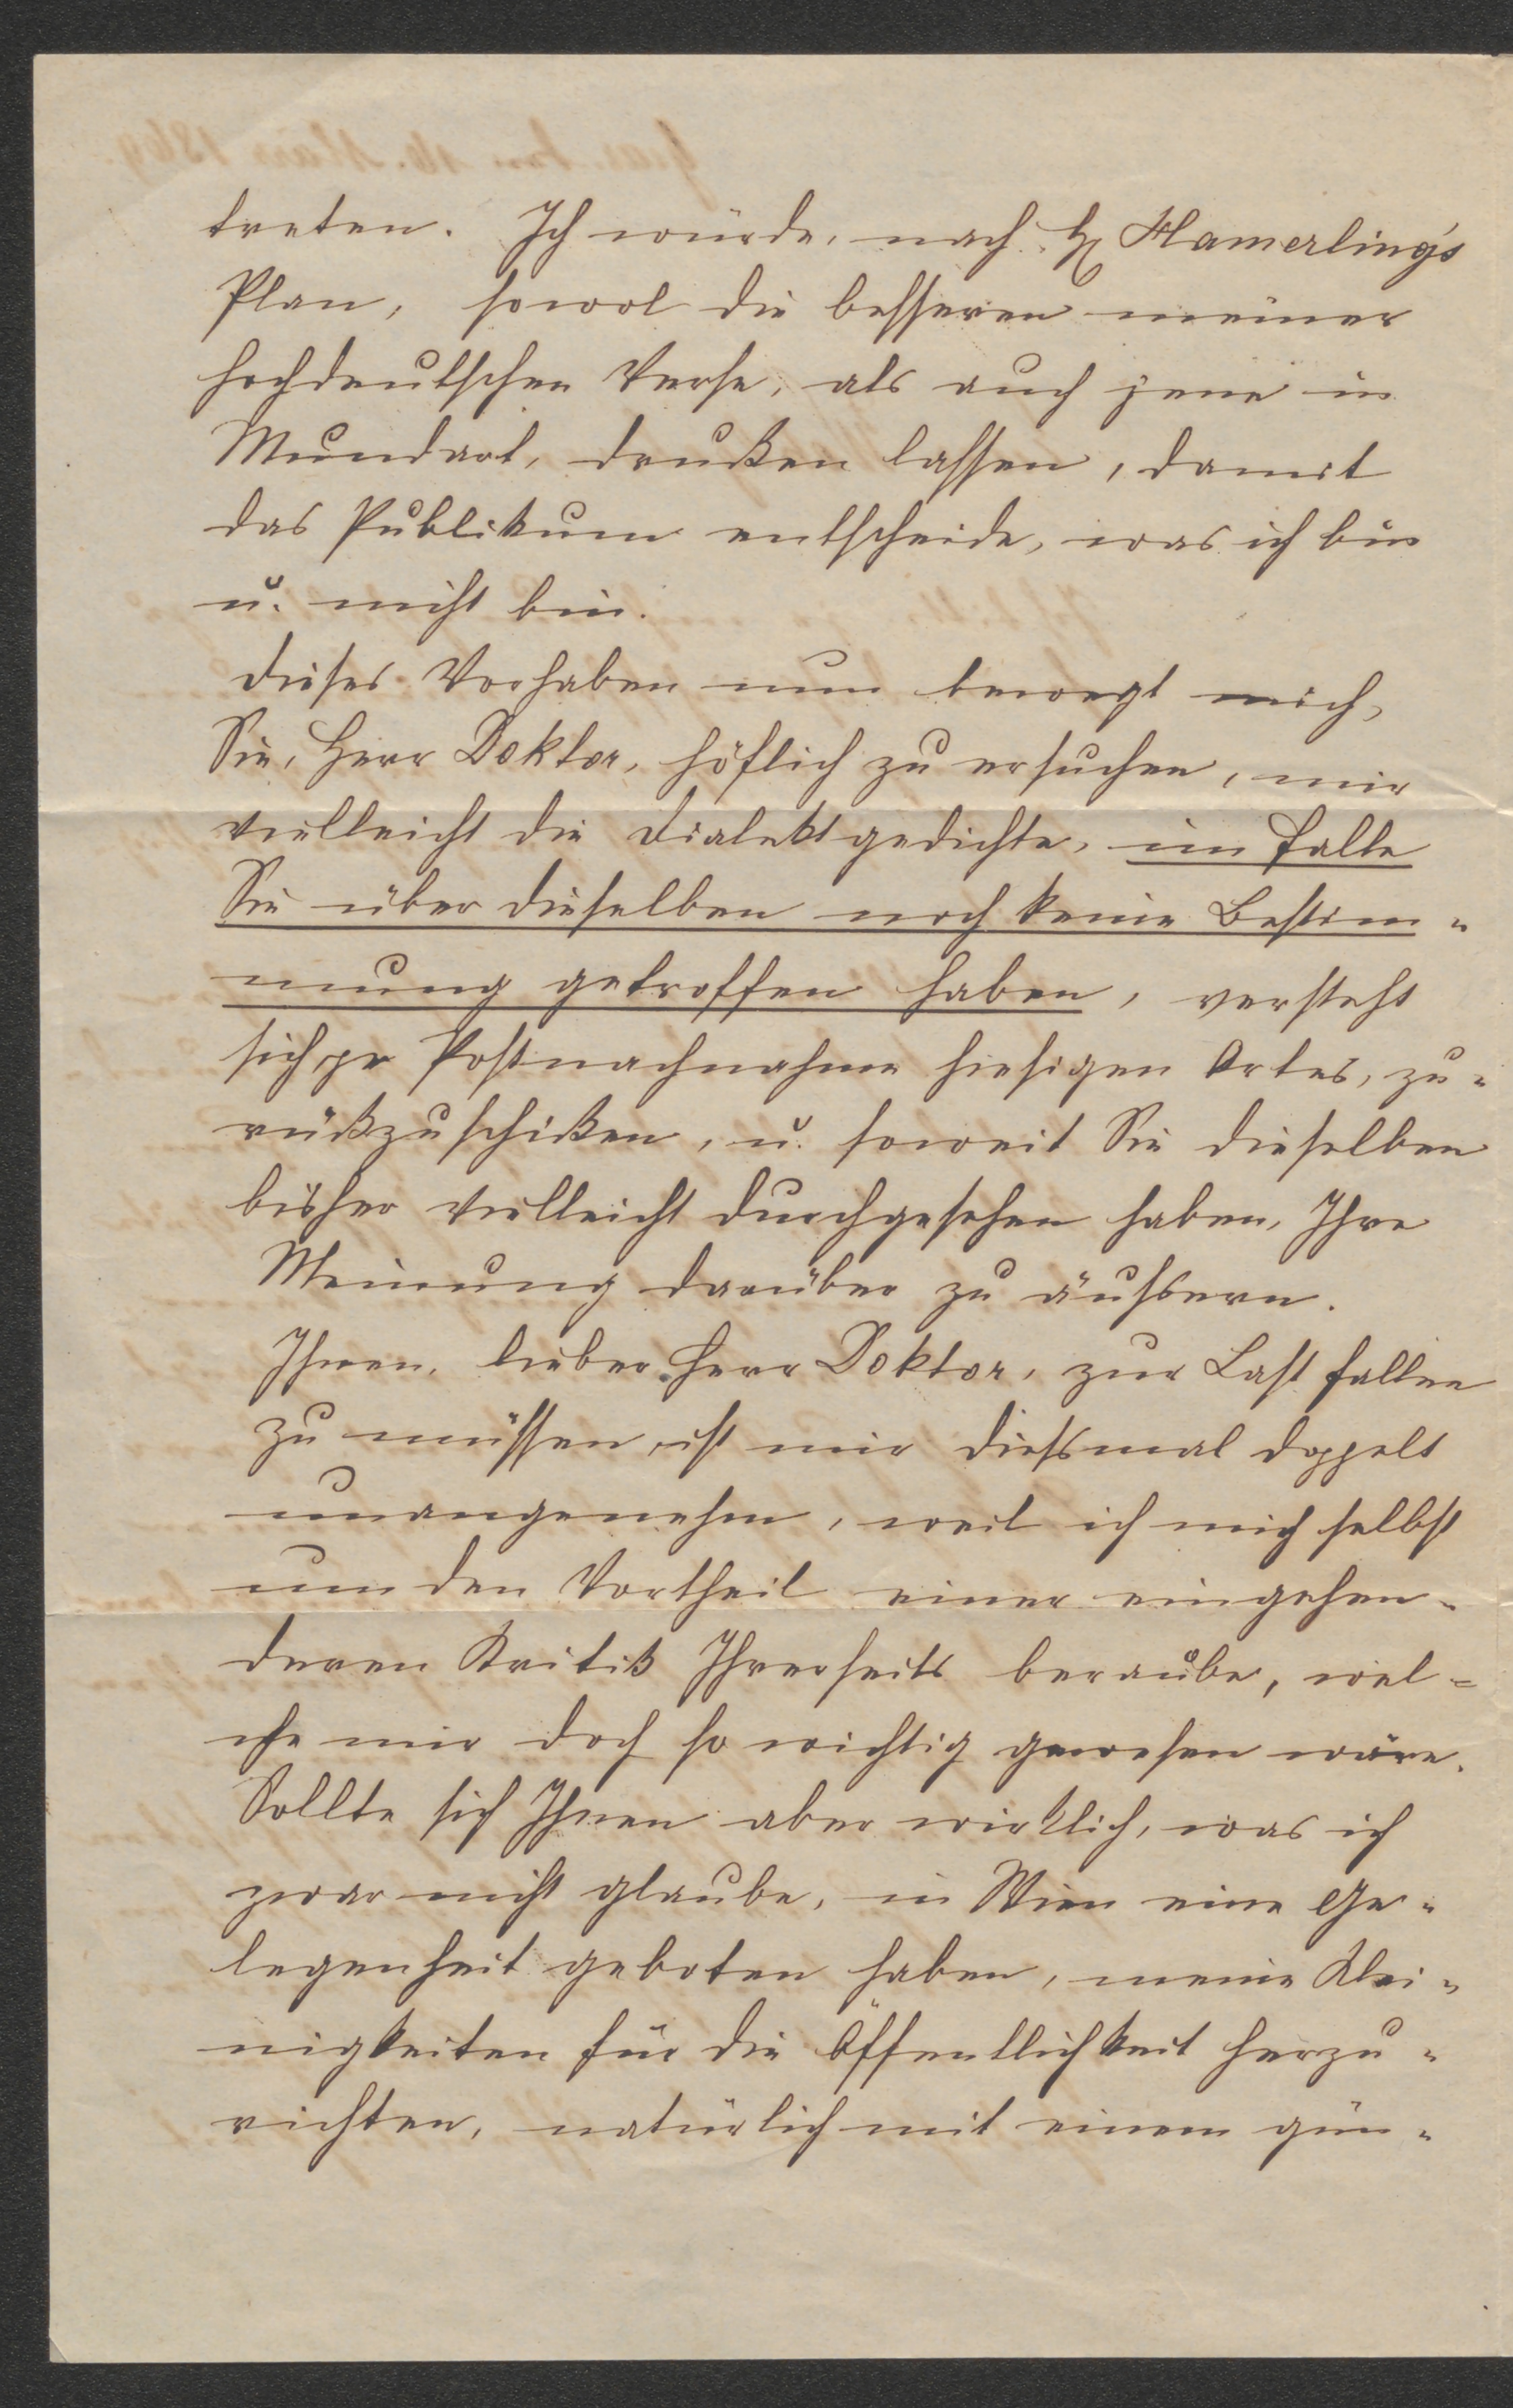 treten. Ich würde, nach H Hamerling's
Plan, sowol die besseren meiner
hochdeutschen Verse, als auch jene in
Mundart, drucken lassen, damit
das Publikum entscheide, was ich bin
u. nicht bin.
Dieses Vorhaben nun bewegt mich,
Sie, Herr Doktor, höflich zu ersuchen, mir
vielleicht die Dialektgedichte, im Falle
Sie über dieselben noch keine Bestim-
mung getroffen haben, versteht
sich pr Postnachnahme hiesigen Ortes, zu-
rückzuschicken, u. soweit Sie dieselben
bisher vielleicht durchgesehen haben, Ihre
Meinung darüber zu äußern.
Ihnen, lieber Herr Doktor, zur Last fallen
zu müssen, ist mir dießmal doppelt
unangenehm, weil ich mich selbst
um den Vortheil einer eingehen-
deren Kritik Ihrerseits beraube, wel-
che mir doch so wichtig gewesen wäre.
Sollte sich Ihnen aber wirklich, was ich
zwar nicht glaube, in Wien eine Ge-
legenheit geboten haben, meine Klei-
nigkeiten für die Öffentlichkeit herzu-
richten, natürlich mit einem gün-